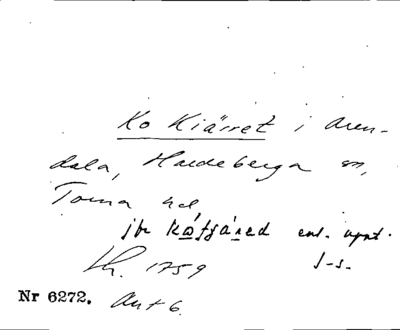 Ko Kiärret i Aren-
dala, Hardeberga sn,
Torna hd
jbr kátjáred enl. uppt.
Lh. 1759 J-s.
Nr 6272. Ant 6.